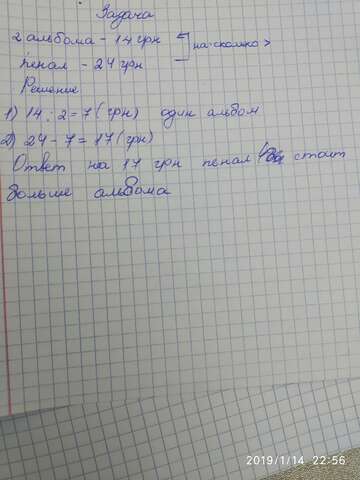 Задача
2 альбома - 14 грн
пенал - 24 грн
на сколько >
Решение
1) 14 : 2 = 7 (грн) один альбом
2) 24 - 7 = 17 (грн)
Ответ на 17 грн пенал стоит
больше альбома
2019/1/14 22:56